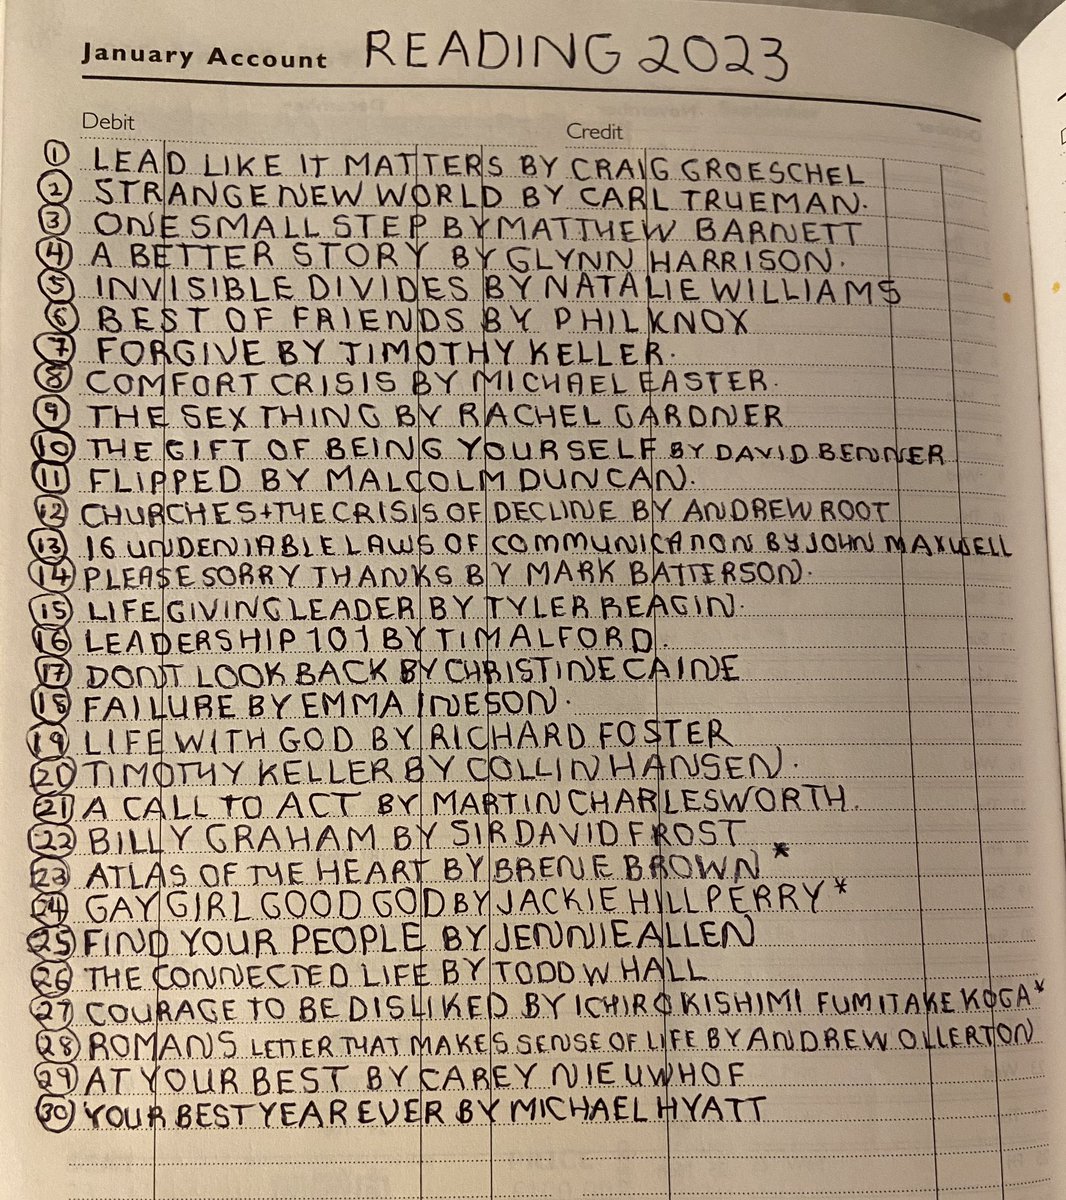 January Account READING 2023
Debit Credit
1 LEAD LIKE IT MATTERS BY CRAIG GROESCHEL
2 STRANGE NEW WORLD BY CARL TRUEMAN.
3 ONE SMALL STEP BY MATTHEW BARNETT
4 A BETTER STORY BY GLYNN HARRISON.
5 INVISIBLE DIVIDES BY NATALIE WILLIAMS
6 BEST OF FRIENDS BY PHIL KNOX
7 FORGIVE BY TIMOTHY KELLER.
8 COMFORT CRISIS BY MICHAEL EASTER.
9 THE SEX THING BY RACHEL GARDNER
10 THE GIFT OF BEING YOURSELF BY DAVID BENNER
11 FLIPPED BY MALCOLM DUNCAN.
12 CHURCHES + THE CRISIS OF DECLINE BY ANDREW ROOT
13 16 UNDENIABLE LAWS OF COMMUNICATION BY JOHN MAXWELL
14 PLEASE SORRY THANKS BY MARK BATTERSON.
15 LIFE GIVING LEADER BY TYLER REAGIN.
16 LEADERSHIP 101 BY TIM ALFORD.
17 DONT LOOK BACK BY CHRISTINE CAINE
18 FAILURE BY EMMA INESON.
19 LIFE WITH GOD BY RICHARD FOSTER
20 TIMOTHY KELLER BY COLLIN HANSEN.
21 A CALL TO ACT BY MARTIN CHARLESWORTH.
22 BILLY GRAHAM BY SIR DAVID FROST
23 ATLAS OF THE HEART BY BRENE BROWN *
24 GAY GIRL GOOD GOD BY JACKIE HILL PERRY *
25 FIND YOUR PEOPLE BY JENNIE ALLEN
26 THE CONNECTED LIFE BY TODD W HALL
27 COURAGE TO BE DISLIKED BY ICHIRO KISHIMI FUMITAKE KOGA *
28 ROMANS LETTER THAT MAKES SENSE OF LIFE BY ANDREW OLLERTON
29 AT YOUR BEST BY CAREY NIEUWHOF
30 YOUR BEST YEAR EVER BY MICHAEL HYATT